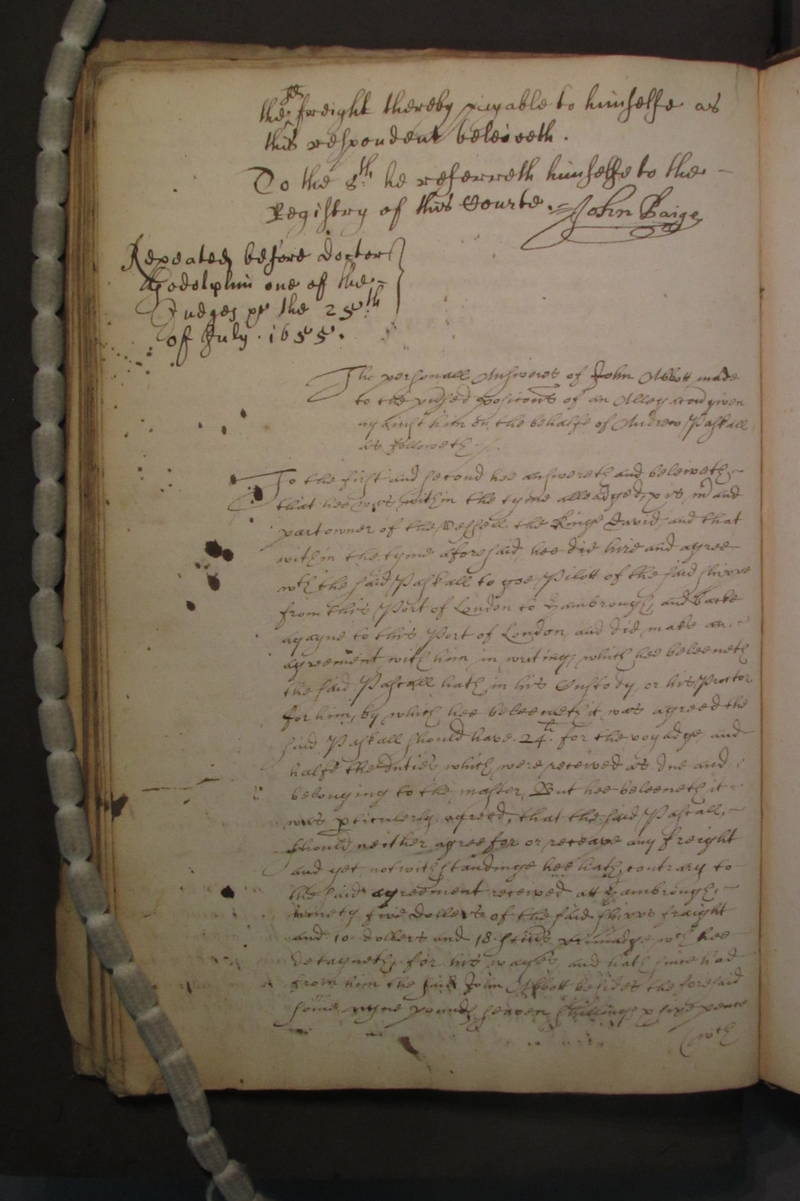 the freight thereby payable to himselfe as
this respondent beleiveth.
To the 8th he referreth himselfe to the
Registry of this Courte. John Paige
Repeated before Doctor
Godolphin one of the
Judges the 25th
of July. 1655.
The personall Answeres of John Abbott made
to the of an given
against him on the behalfe of Andrew Paskall
as followeth
To the first and second hee answereth and beleeveth
that hee was within the tyme alleadged, and
partowner of the vessell the Kinge David and that
within the tyme aforesaid hee did hire and agree
wth the said Paskall to goe Pilott of the said shippe
from this Port of London to Hambrough, and backe
agayne to this Port of London, and did make an
agreement with him in writing, which hee beleeveth
the said Paskall hath in his Custody, or his Proctor
for him, by which hee beleeveth it was agreed the
said Paskall should have 24 for the voyadge and
halfe the duties which were received as due and
belonging to the master, But hee beleeveth it
was pticulerly agreed, that the said Paskall,
should neither agree for or receave any freight
and yet notwithstandinge hee hath contrary to
the said agreement received att Hambrough,
ninety five Dollers of the said shipps fraight
and 10 dollers and 18 wch hee
detayneth for his wages and hath since had
from him the said John Abbott besides the foresaid
some nyne pounds seaven shillings sixe pence
(wch